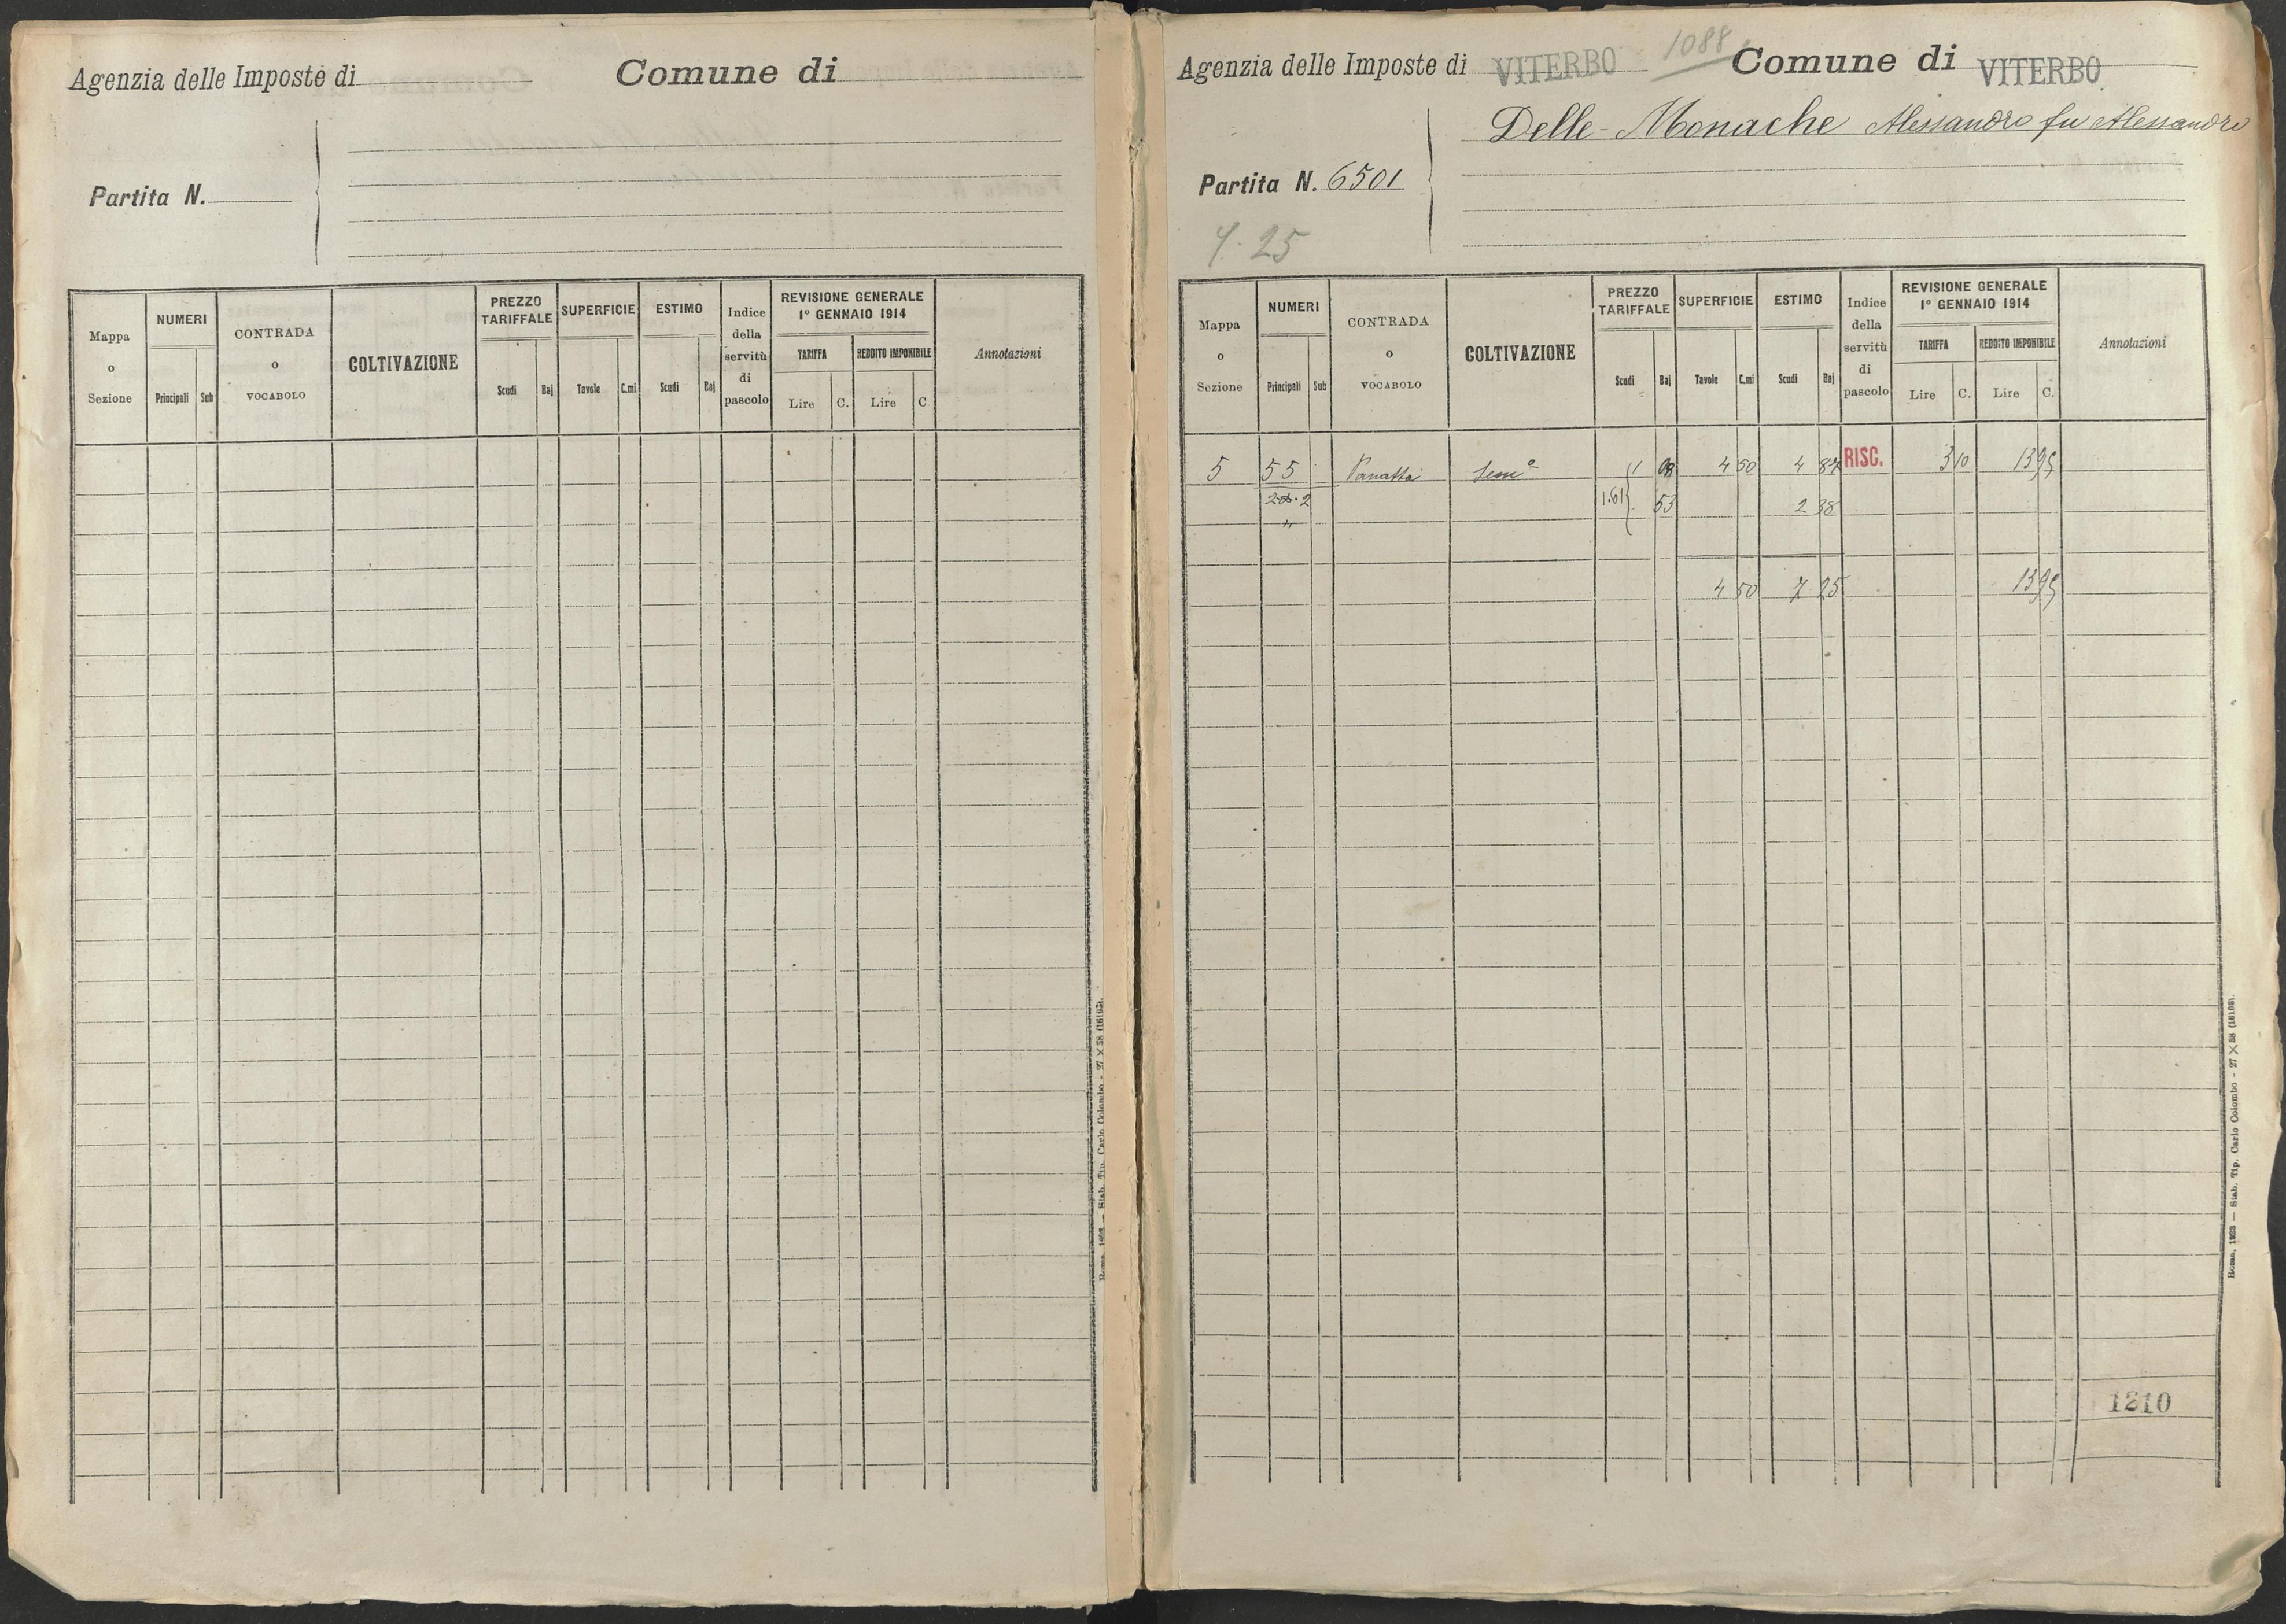 Agenzia delle Imposte di
Comune di
Partita N.
Mappa o Sezione
NUMERI
Principali Sub
CONTRADA o VOCABOLO
COLTIVAZIONE
PREZZO TARIFFALE
Scudi Baj
SUPERFICIE
Tavole C.mi
ESTIMO
Scudi Baj
Indice della servitù di pascolo
REVISIONE GENERALE
1° GENNAIO 1914
TARIFFA REDDITO IMPONIBILE
Lire C. Lire C
Annotazioni
Roma, 1923 — Stab. Tip. Carlo Colombo - 27 × 38 (16163).
1088
Agenzia delle Imposte di VITERBO Comune di VITERBO
Delle-Monache Alessandro fu Alessandro
Partita N. 6501
7.25
Mappa o Sezione
NUMERI
Principali Sub
CONTRADA o VOCABOLO
COLTIVAZIONE
PREZZO TARIFFALE
Scudi Baj
SUPERFICIE
Tavole C.mi
ESTIMO
Scudi Baj
Indice della servitù di pascolo
REVISIONE GENERALE
1° GENNAIO 1914
TARIFFA REDDITO IMPONIBILE
Lire C. Lire C.
Annotazioni
5 55 Sem° 1 08 4 50 4 87 RISC. 3 10 13 95
1.61 53 2 38
4 50 7 25 13 95
1210
Roma, 1923 — Stab. Tip. Carlo Colombo - 27 × 38 (16163).